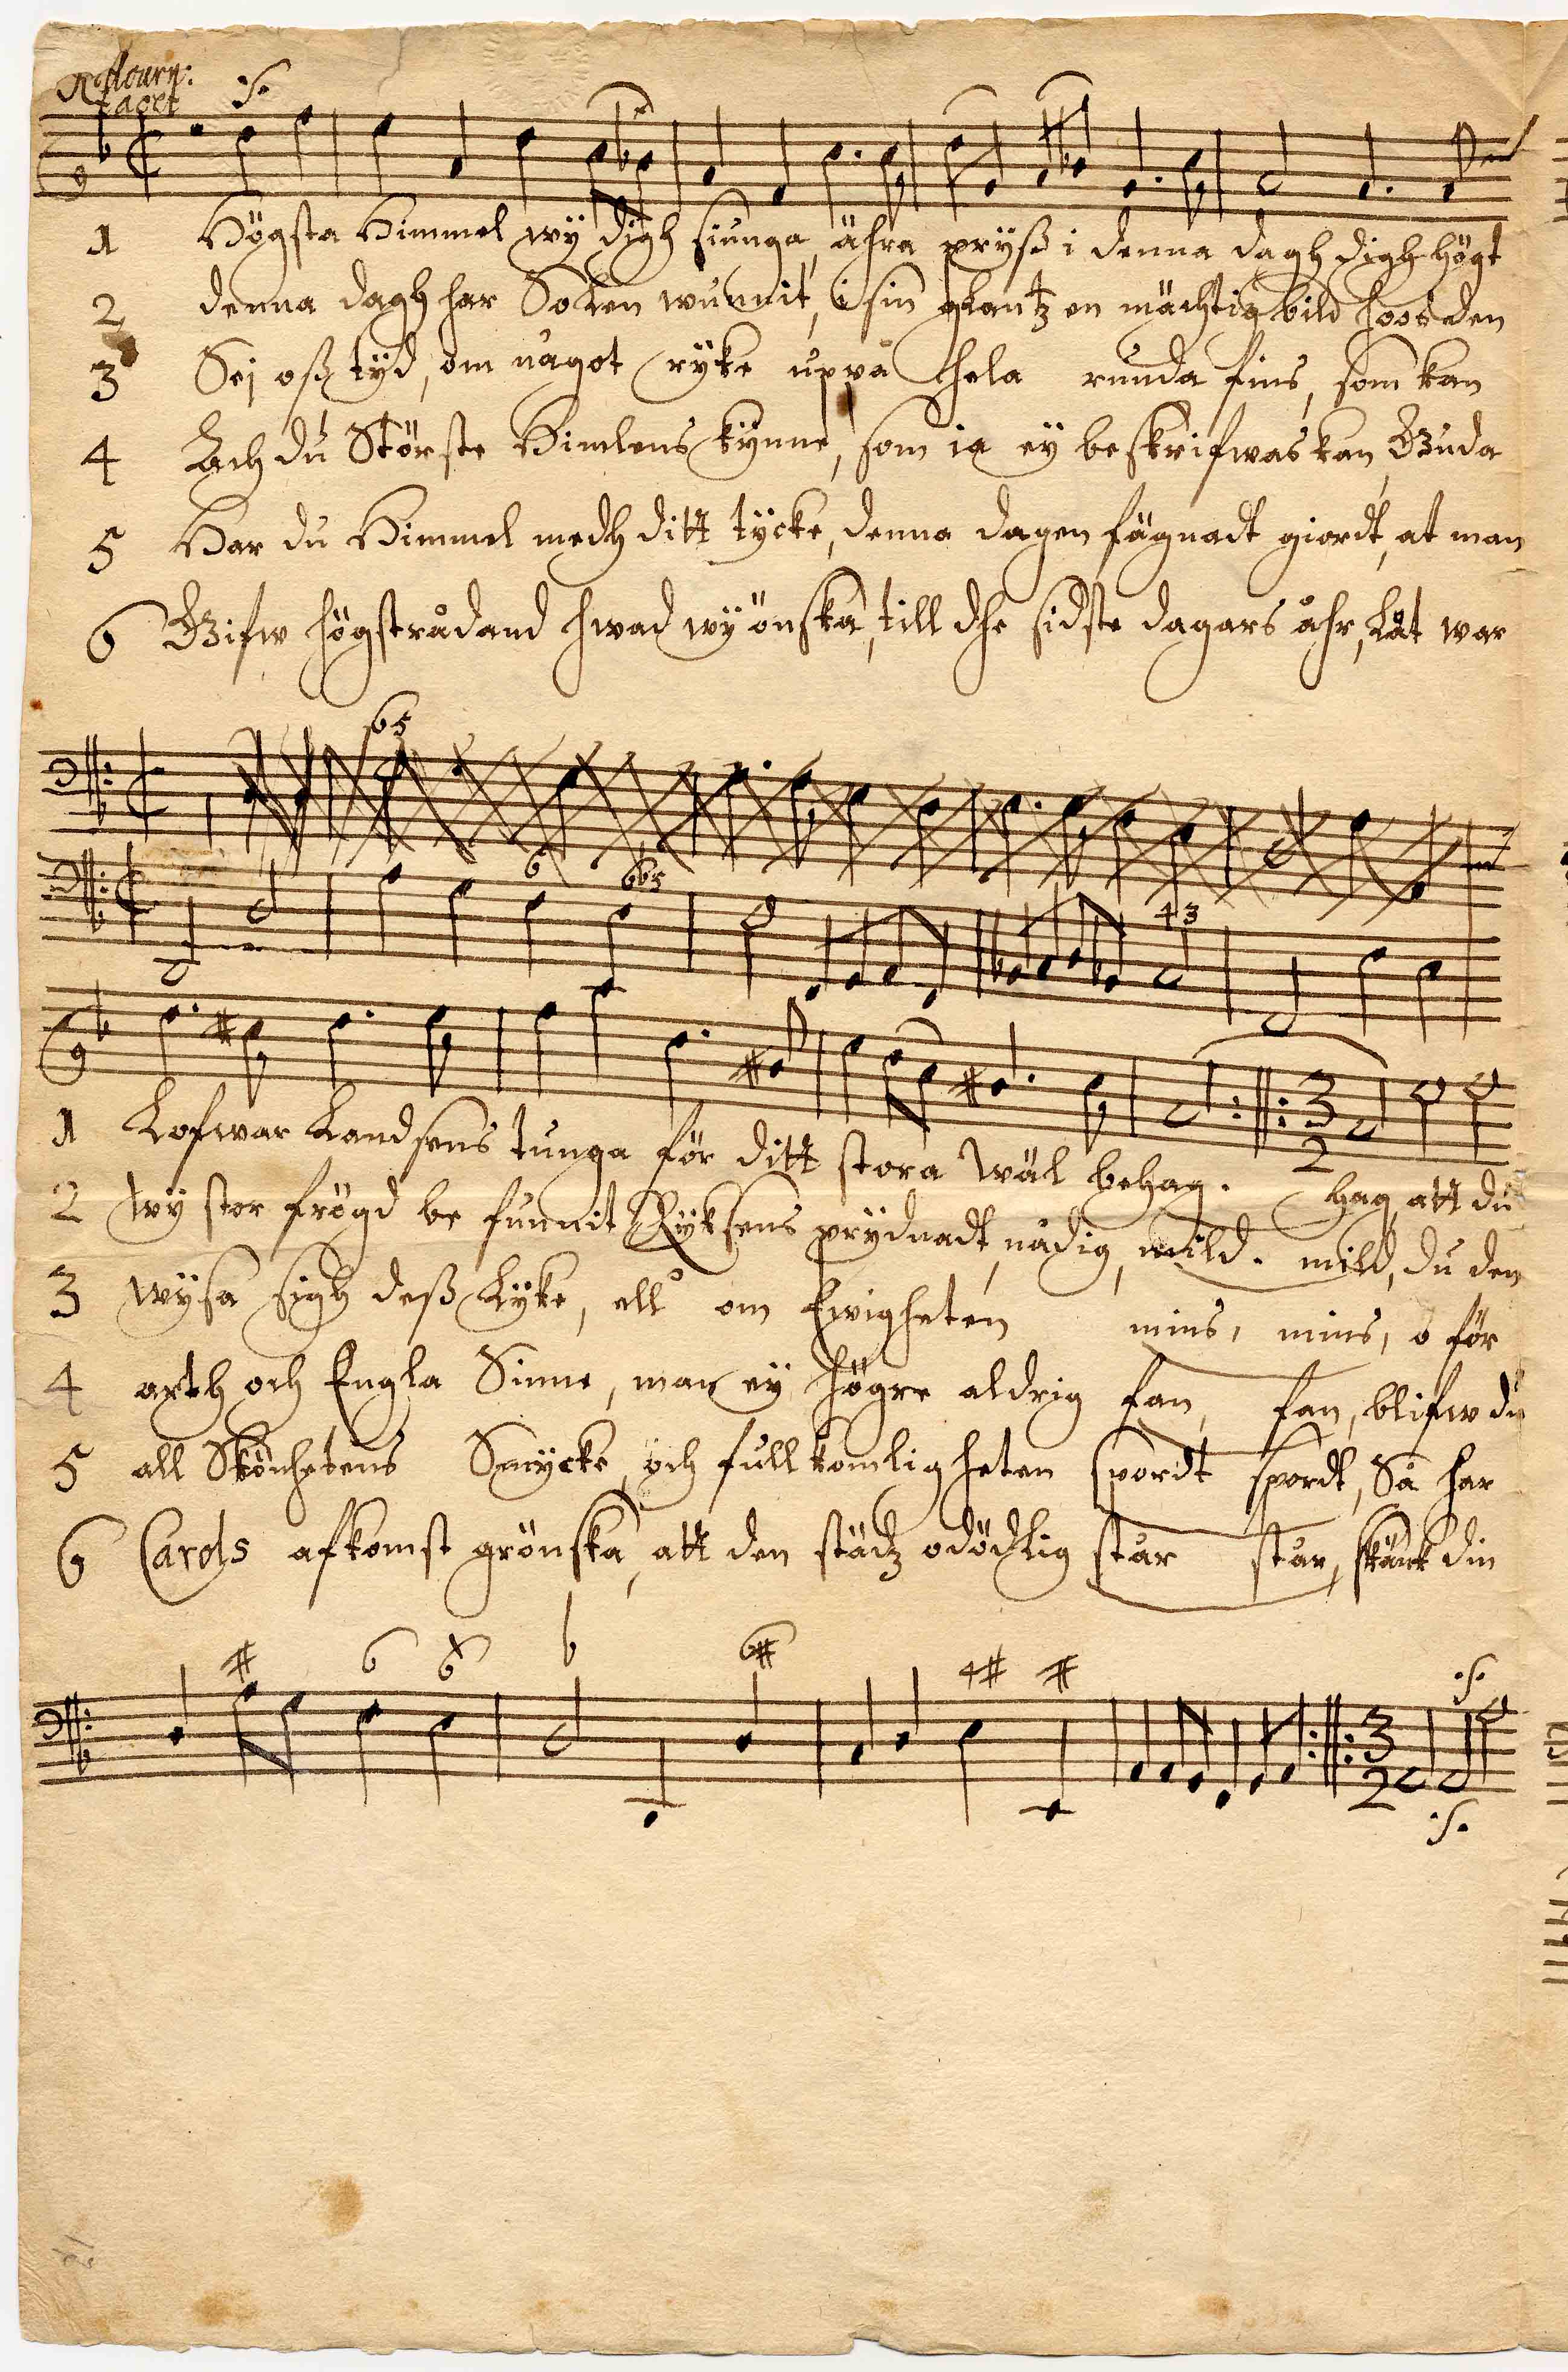 1 Högsta Himmel wÿ digh siunga, ähra prÿß i denna dagh digh högt
2 denna dagh har Solen wunnit, i sin glantz en mächtig bild hoos den
3 Sej oß tÿd, om något rÿke uppå hela runda fins, som kan
4 Ach du Störste Himlens kÿnne, som ia eÿ beskrifwas kan, Guda
5 Har du Himmel medh ditt tÿcke, denna dagen fägnadt giordt, at man
6 Gifw högstrådand hwad wÿ önska, till dhe sidste dagars åhr, låt war
6 5
6
6 b5
4 3
1 Lofwar Landsens tunga för ditt stora wäl behag. hag, att du
2 wÿ stor frögd be funnit Rÿksens prÿdnadt, nådig, mild. mild, du den
3 wÿsa sigh deß Lÿke, ell om Ewigheten mins, mins, o för
4 arth och Engla Sinne, man eÿ högre aldrig fan, fan, blifw du
5 all Skönhetens Smÿcke, och full komligheten spordt spordt, Så har
6 Carols afkomst grönska, att den städz odödhlig står står, skänk din
# 6 6 b 6# 4# #